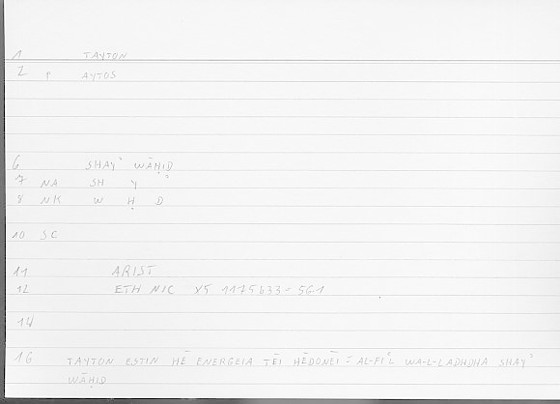 1 TAYTON
2 P AYTOS
6 SHAYʾ WĀḤID
7 NA SH Y ʾ
8 NK W Ḥ D
10 SC
11 ARIST
12 ETH NIC X5 1175b33-561
14
16 TAYTON ESTIN HĒ ENERGEIA TĒI HĒDONĒI = AL-FIʿL WA-L-LADHDHA SHAYʾ
WĀḤID